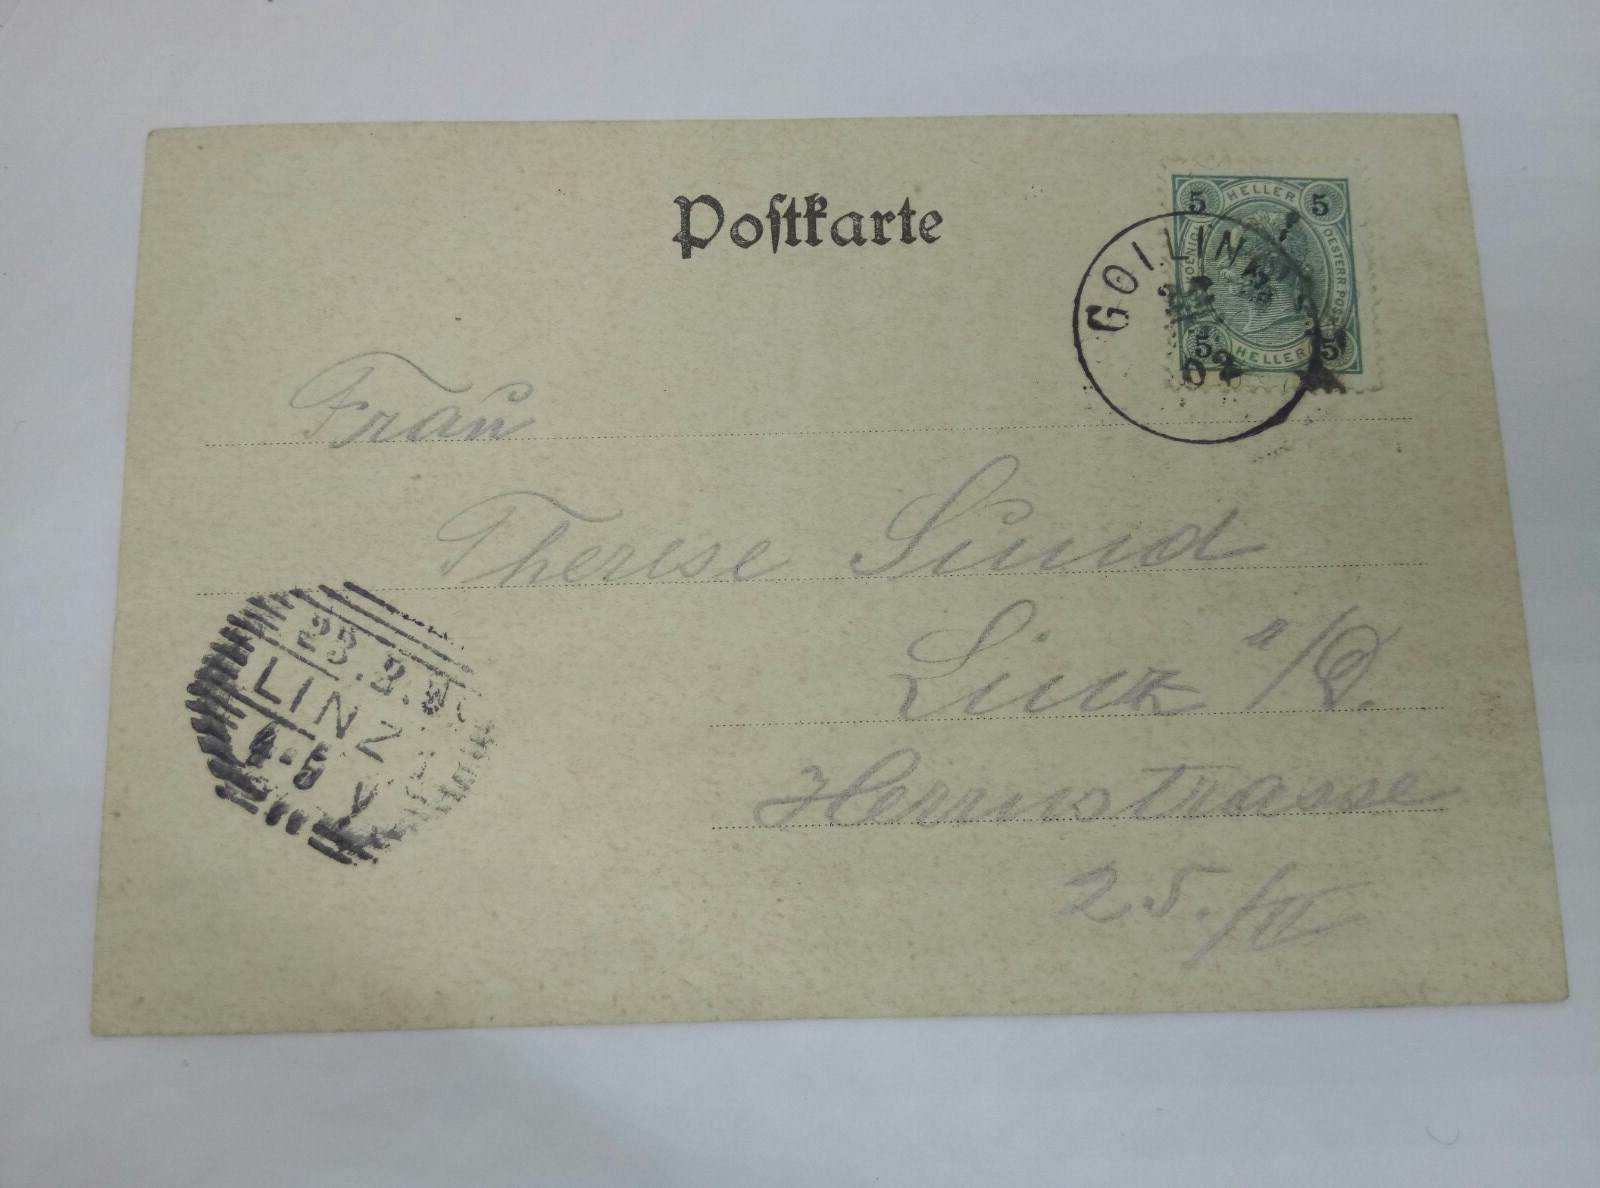 Postkarte
5 HELLER 5
OESTERR POST
5 HELLER 5
GOLLING
02
Frau
Therese Sund
Linz a/D.
Herrnstrasse
25./II
23.2.
LINZ
4-5 V